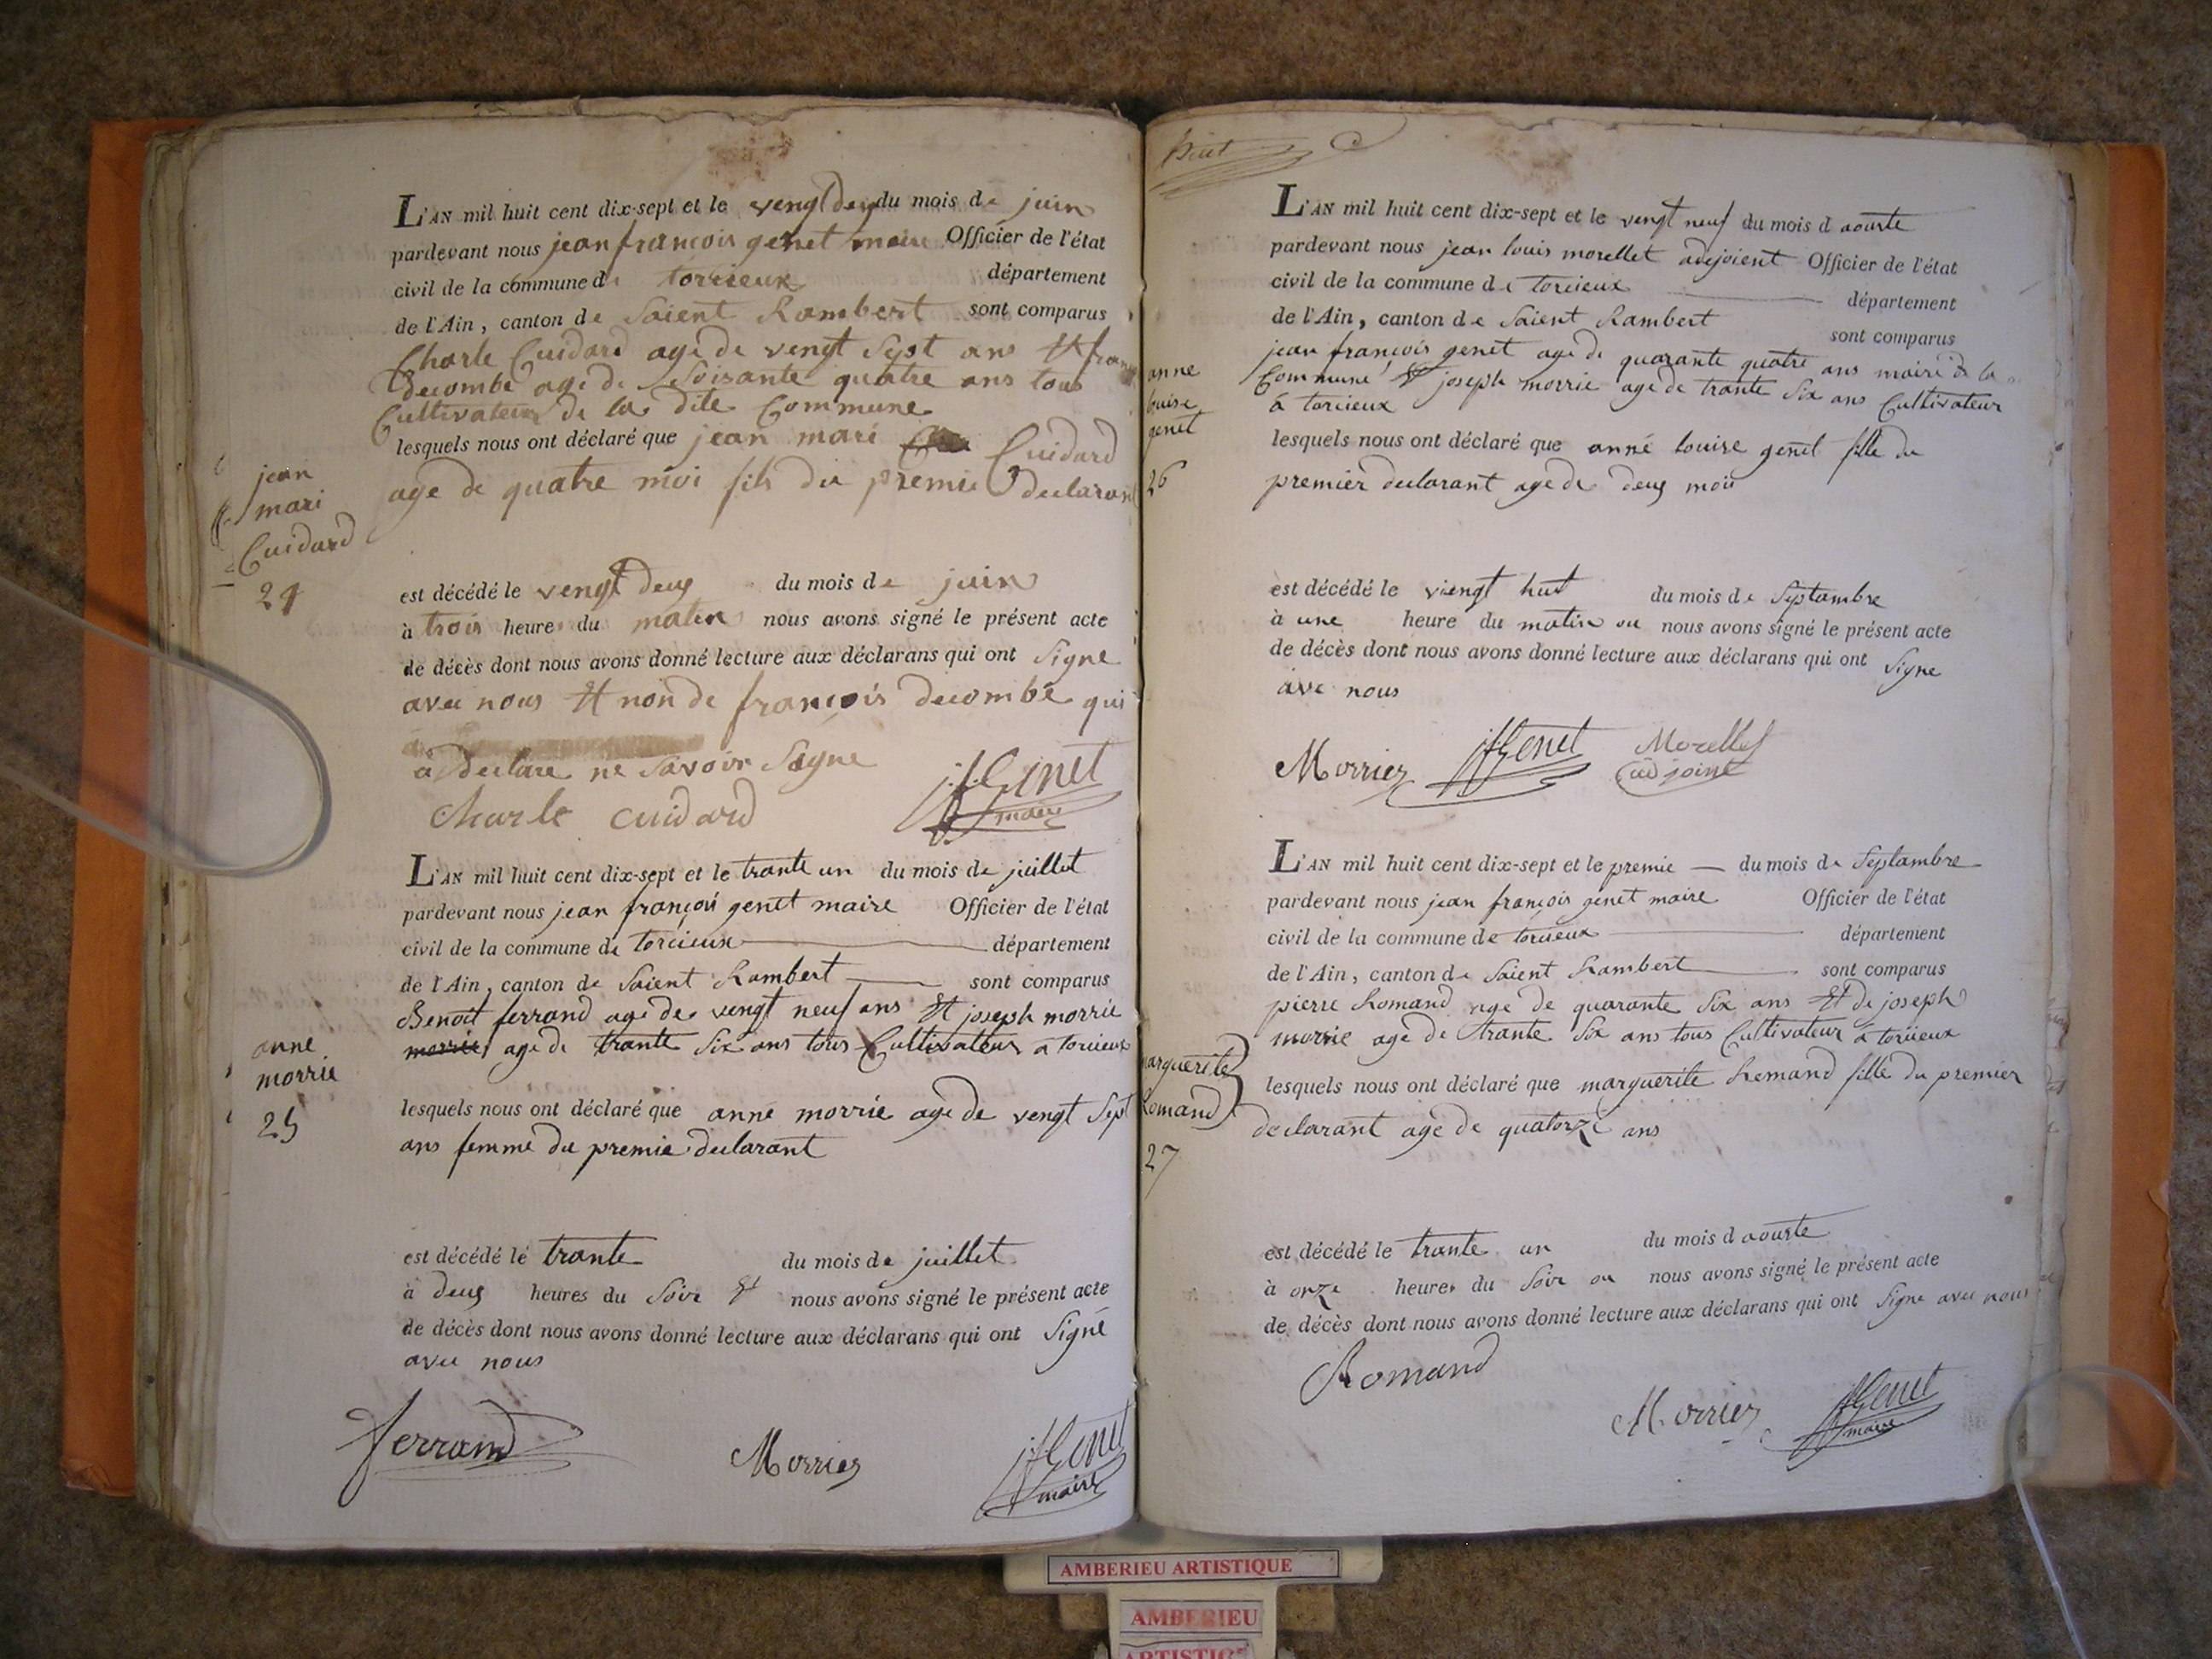 L'AN mil huit cent dix-sept et le vengt deus du mois de juin
pardevant nous jean françois genet maire Officier de l'état
civil de la commune de torcieux département
de l'Ain, canton de Saient Rambert sont comparus
Charle Cuidard age de vengt Sept ans Et françois
Decombe age de Soisante quatre ans tous
Cultivateur de la dite Commune
lesquels nous ont déclaré que jean mari Cuidard
age de quatre moi fils du premie declarant
jean
mari
Cuidard
24
est décédé le vengt deus du mois de juin
à trois heures du maten nous avons signé le présent acte
de décès dont nous avons donné lecture aux déclarans qui ont Signe
avec nous Et non de françois decombe qui
a declare ne Savoir Signe
Charle Cuidard
jf Genet
maire
L'AN mil huit cent dix-sept et le trante un du mois de juillet
pardevant nous jean françois genet maire Officier de l'état
civil de la commune de torcieux département
de l'Ain, canton de Saient Rambert sont comparus
Benoit ferrand age de vengt neuf ans Et joseph morrie
morrie age de trante Six ans tous Cultivateur a torcieux
anne
morrie
25
lesquels nous ont déclaré que anne morrie age de vengt Sept
ans femme du premie declarant
est décédé le trante du mois de juillet
à deus heures du Soir Et nous avons signé le présent acte
de décès dont nous avons donné lecture aux déclarans qui ont Signé
avec nous
ferrand
Morriez
jf Genet
maire
L'AN mil huit cent dix-sept et le vengt neuf du mois d aourte
pardevant nous jean louis morellet adejoient Officier de l'état
civil de la commune de torcieux département
de l'Ain, canton de Saient Rambert sont comparus
jean françois genet age de quarante quatre ans maire de la
Commune Et joseph morrie age de trante Six ans Cultivateur
à torcieux
anne
louise
genet
26
lesquels nous ont déclaré que anné louise genet fille du
premier declarant age de deus moi
est décédé le viengt huit du mois de Septambre
à une heure du matin ou nous avons signé le présent acte
de décès dont nous avons donné lecture aux déclarans qui ont Signe
ave nous
Morriez jf Genet Morellet
adjoint
L'AN mil huit cent dix-sept et le premie du mois de Septambre
pardevant nous jean françois genet maire Officier de l'état
civil de la commune de torcieux département
de l'Ain, canton de Saient Rambert sont comparus
pierre Romand age de quarante Six ans Et de joseph
morrie age de trante Six ans tous Cultivateur á torcieux
marguerite
Romand
27
lesquels nous ont déclaré que marguerite Romand fille du premier
declarant age de quatorze ans
est décédé le trante un du mois d aourte
à onze heures du Soir ou nous avons signé le présent acte
de décès dont nous avons donné lecture aux déclarans qui ont Signe avec nous
Romand
Morriez
jf Genet
maire
AMBERIEU ARTISTIQUE
AMBERIEU
ARTISTIQUE